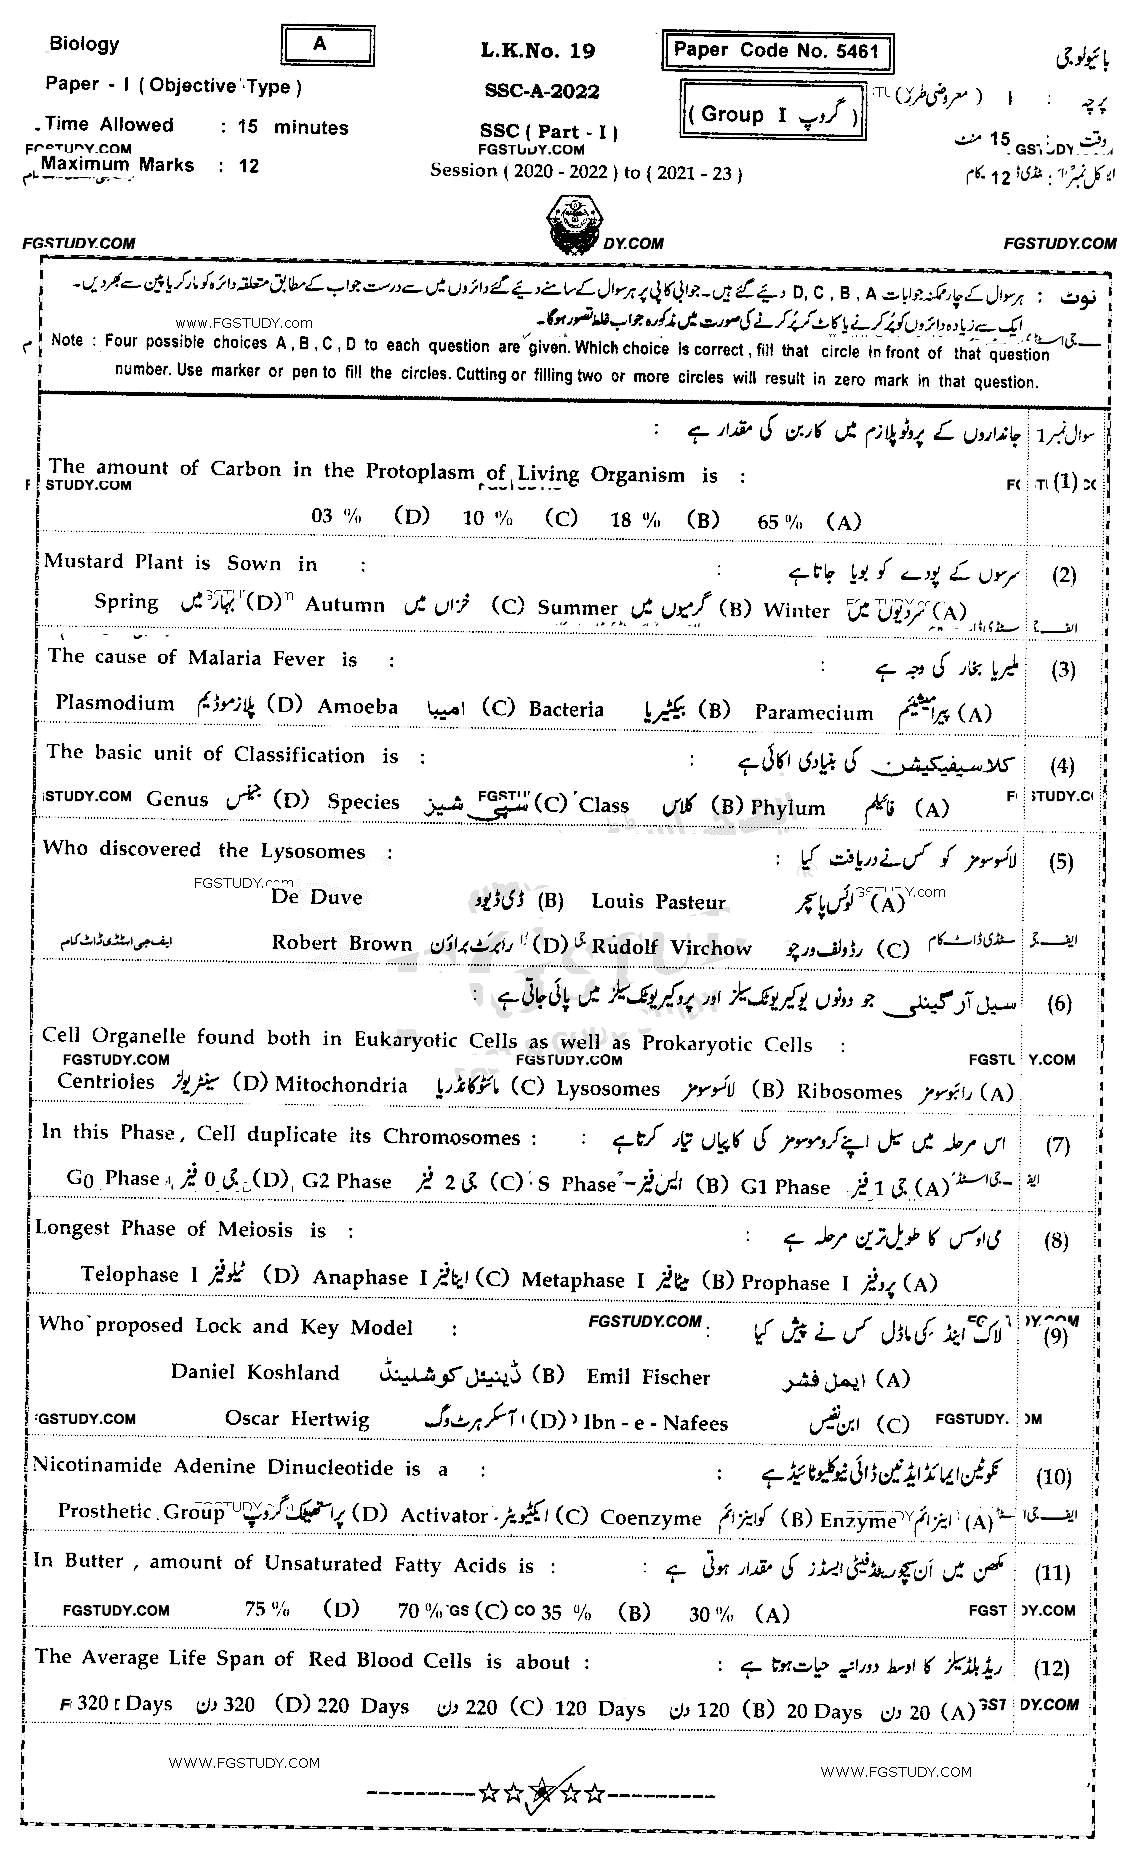 Biology
A
L.K.No. 19
Paper Code No. 5461
بائیولوجی
Paper - I ( Objective Type )
SSC-A-2022
( Group I گروپ )
پرچہ : I ( معروضی طرز )
Time Allowed : 15 minutes
SSC ( Part - I )
وقت : 15 منٹ
FGSTUDY.COM
Maximum Marks : 12
Session ( 2020 - 2022 ) to ( 2021 - 23 )
FGSTUDY.COM
DY.COM
FGSTUDY.COM
نوٹ : ہر سوال کے چار ممکنہ جوابات D, C, B, A دیئے گئے ہیں۔ جوابی کاپی پر ہر سوال کے سامنے دیئے گئے دائروں میں سے درست جواب کے مطابق متعلقہ دائرہ کو مارکر یا پین سے بھر دیں۔
www.FGSTUDY.com
ایک سے زیادہ دائروں کو پُر کرنے یا کاٹ کر پُر کرنے کی صورت میں مذکورہ جواب غلط تصور ہوگا۔
Note : Four possible choices A, B, C, D to each question are given. Which choice is correct, fill that circle in front of that question
number. Use marker or pen to fill the circles. Cutting or filling two or more circles will result in zero mark in that question.
سوال نمبر 1 جانداروں کے پروٹوپلازم میں کاربن کی مقدار ہے :
The amount of Carbon in the Protoplasm of Living Organism is : (1)
STUDY.COM
03 % (D) 10 % (C) 18 % (B) 65 % (A)
Mustard Plant is Sown in : سرسوں کے پودے کو بویا جاتا ہے : (2)
Spring بہار میں (D) Autumn خزاں میں (C) Summer گرمیوں میں (B) Winter سردیوں میں (A)
The cause of Malaria Fever is : ملیریا بخار کی وجہ ہے : (3)
Plasmodium پلازموڈیم (D) Amoeba امیبا (C) Bacteria بیکٹیریا (B) Paramecium پیرامیشیم (A)
The basic unit of Classification is : کلاسیفیکیشن کی بنیادی اکائی ہے : (4)
STUDY.COM Genus جینس (D) Species سپی شیز (C) Class کلاس (B) Phylum فائیلم (A)
Who discovered the Lysosomes : لائسوسومز کو کس نے دریافت کیا : (5)
FGSTUDY.com
De Duve ڈی ڈیوو (B) Louis Pasteur لوئس پاسچر (A)
ایف جی اسٹڈی ڈاٹ کام Robert Brown رابرٹ براؤن (D) Rudolf Virchow رڈولف ورچو (C)
سیل آرگینلی جو دونوں یوکیریوٹک سیلز اور پروکیریوٹک سیلز میں پائی جاتی ہے : (6)
Cell Organelle found both in Eukaryotic Cells as well as Prokaryotic Cells :
FGSTUDY.COM FGSTUDY.COM
Centrioles سینٹریولز (D) Mitochondria مائٹوکانڈریا (C) Lysosomes لائسوسومز (B) Ribosomes رائبوسومز (A)
In this Phase, Cell duplicate its Chromosomes : اس مرحلہ میں سیل اپنے کروموسومز کی کاپیاں تیار کرتا ہے : (7)
G0 Phase جی 0 فیز (D) G2 Phase جی 2 فیز (C) S Phase ایس فیز (B) G1 Phase جی 1 فیز (A)
Longest Phase of Meiosis is : می اوسس کا طویل ترین مرحلہ ہے : (8)
Telophase I ٹیلوفیز (D) Anaphase I اینافیز (C) Metaphase I میٹافیز (B) Prophase I پروفیز (A)
Who proposed Lock and Key Model : FGSTUDY.COM لاک اینڈ کی ماڈل کس نے پیش کیا : (9)
Daniel Koshland ڈینیئل کوشلینڈ (B) Emil Fischer ایمل فشر (A)
GSTUDY.COM Oscar Hertwig آسکر ہرٹ وگ (D) Ibn - e - Nafees ابن نفیس (C) FGSTUDY.
Nicotinamide Adenine Dinucleotide is a : نکوٹین ایمائڈ ایڈنین ڈائی نیوکلیوٹائیڈ ہے : (10)
Prosthetic Group پراستھیٹک گروپ (D) Activator ایکٹیویٹر (C) Coenzyme کواینزائم (B) Enzyme اینزائم (A)
In Butter, amount of Unsaturated Fatty Acids is : مکھن میں اَن سیچوریٹڈ فیٹی ایسڈز کی مقدار ہوتی ہے : (11)
FGSTUDY.COM 75 % (D) 70 % (C) 35 % (B) 30 % (A)
The Average Life Span of Red Blood Cells is about : ریڈ بلڈ سیلز کا اوسط دورانیہ حیات ہوتا ہے : (12)
320 Days 320 دن (D) 220 Days 220 دن (C) 120 Days 120 دن (B) 20 Days 20 دن (A)
WWW.FGSTUDY.COM
WWW.FGSTUDY.COM